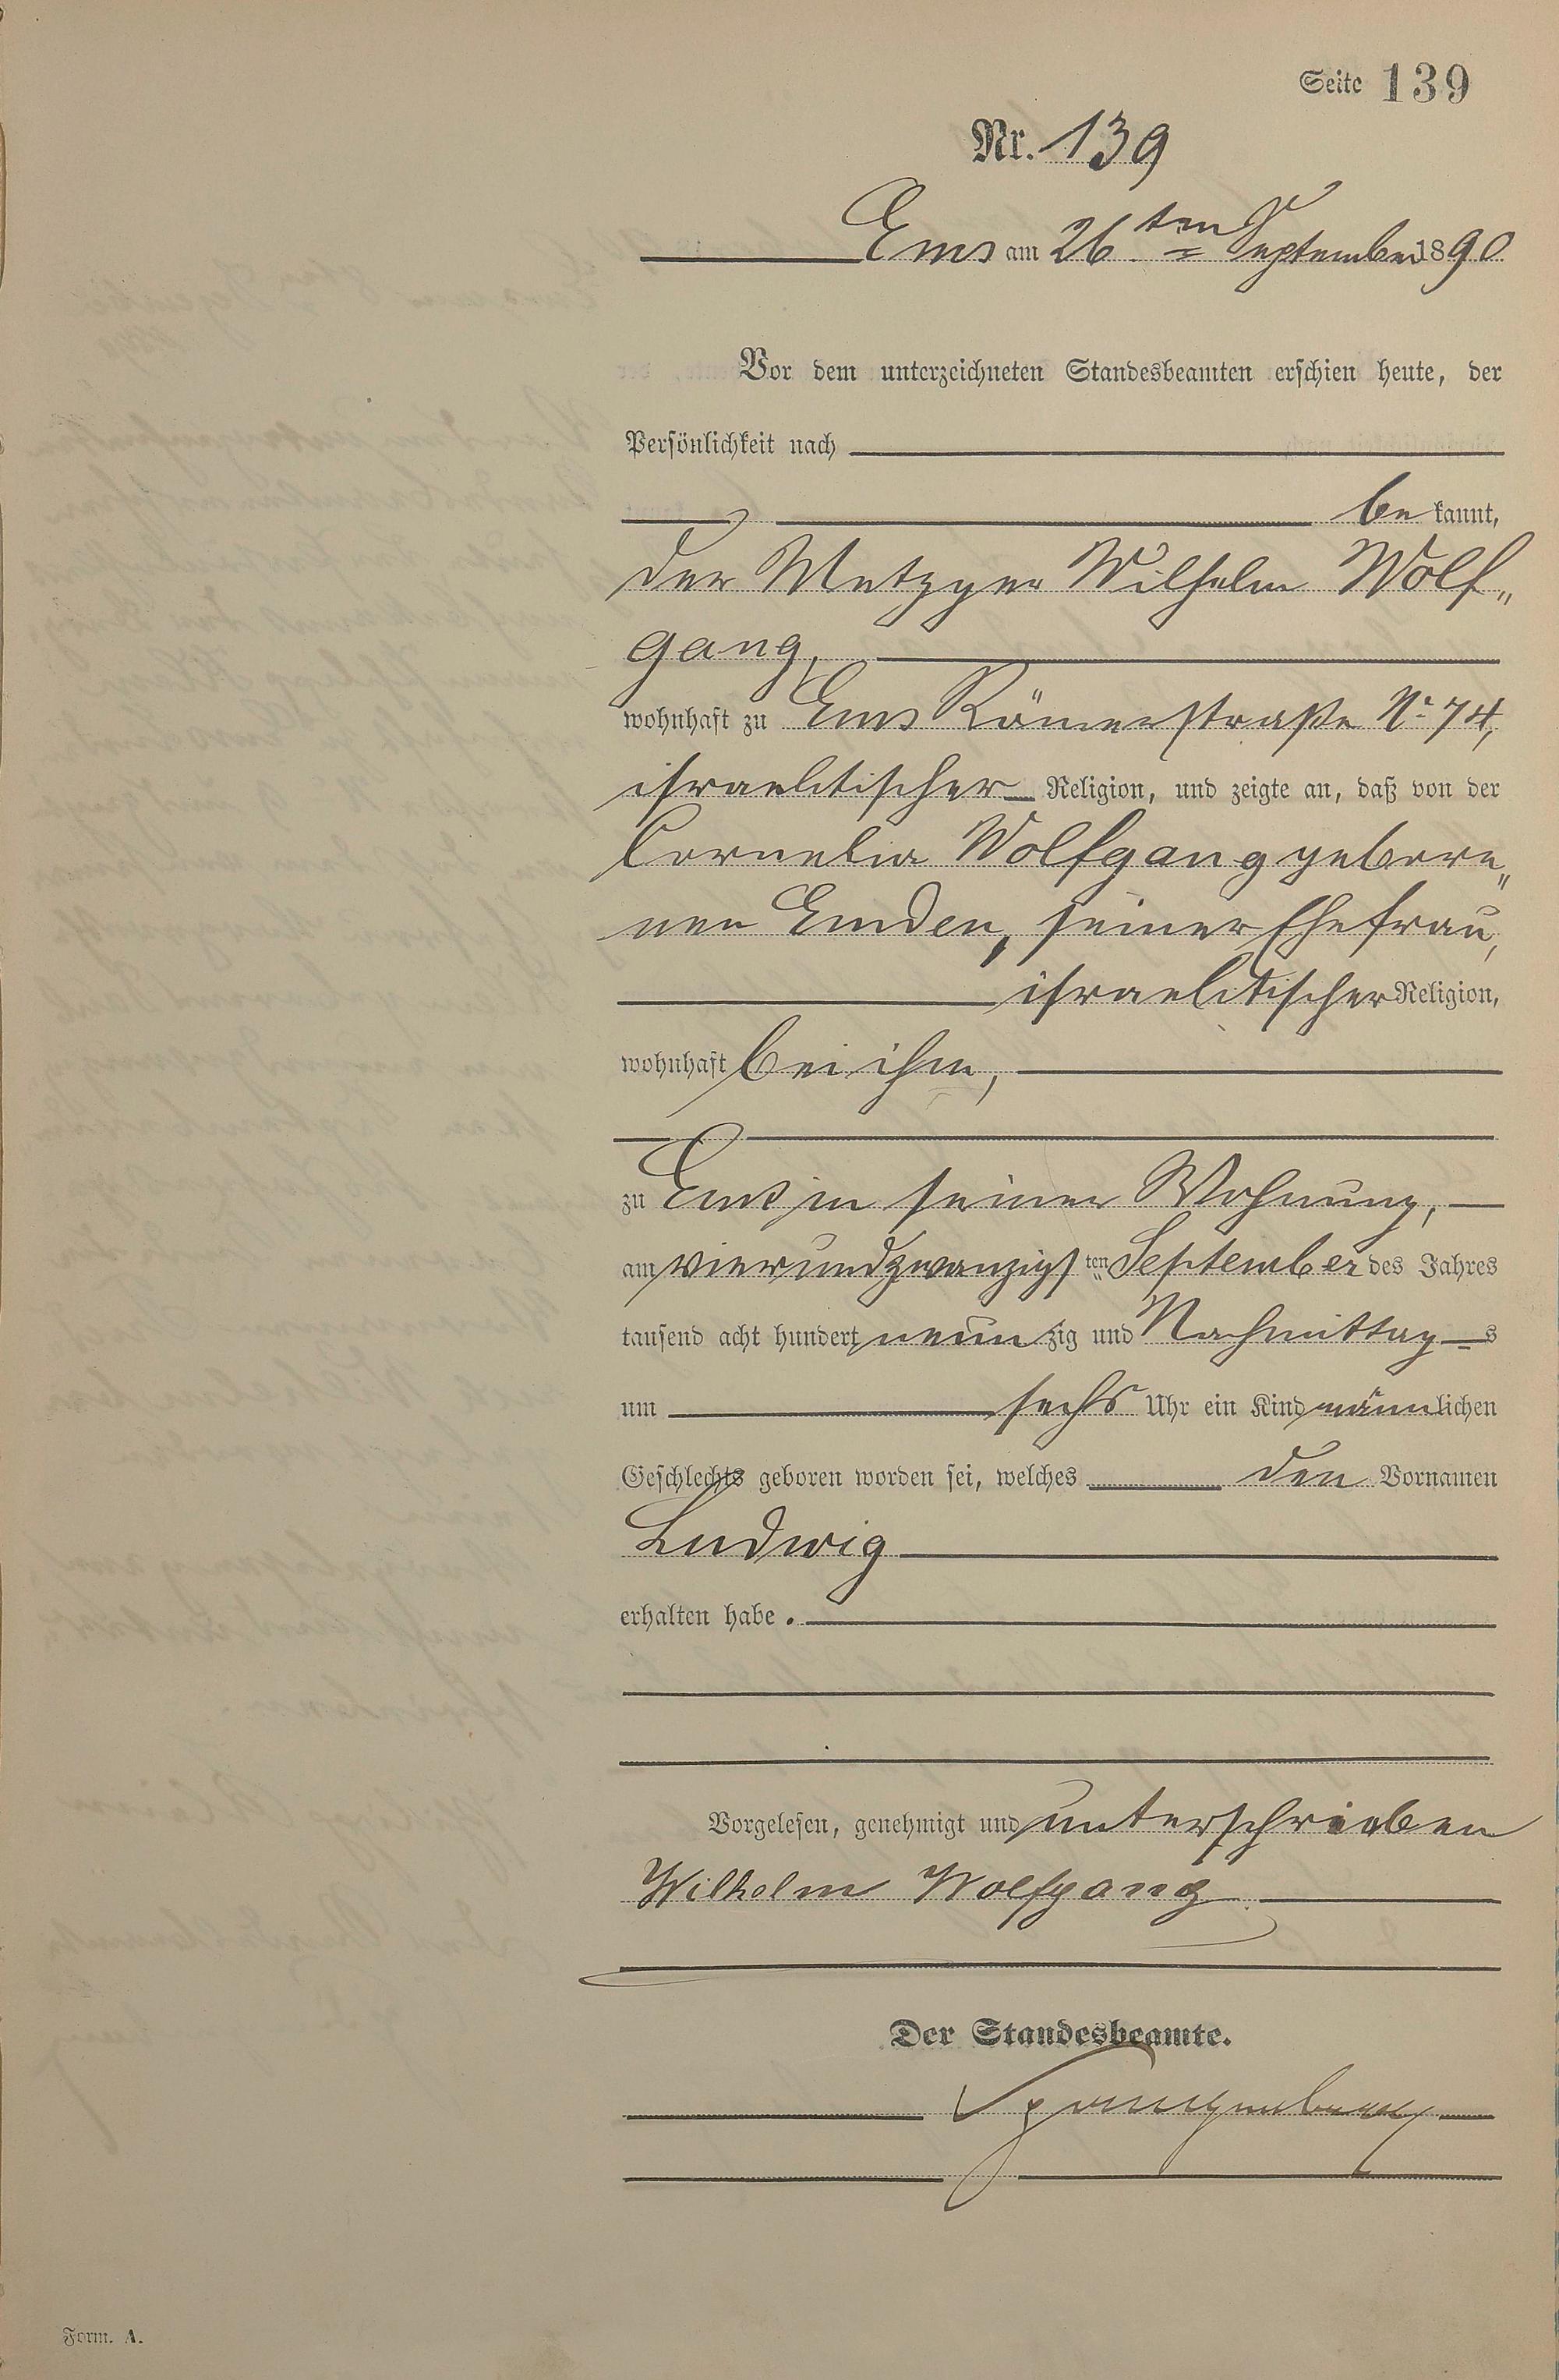 Seite 139
Nr. 139
Ems am 26ten September 1890
Vor dem unterzeichneten Standesbeamten erschien heute, der
Persönlichkeit nach
be kannt,
der Metzger Wilhelm Wolf„
gang,
wohnhaft zu Ems Römerstraße No 74,
israelitischer Religion, und zeigte an, daß von der
Cornelia Wolfgang gebore„
nen Emden, seiner Ehefrau,
israelitischer Religion,
wohnhaft bei ihm,
zu Ems in seiner Wohnung,
am vierundzwanzigsten September des Jahres
tausend acht hundert neunzig und Nachmittags
um sechs Uhr ein Kind männlichen
Geschlechts geboren worden sei, welches den Vornamen
Ludwig
erhalten habe.
Vorgelesen, genehmigt und unterschrieben
Wilhelm Wolfgang
Der Standesbeamte.
Form. A.